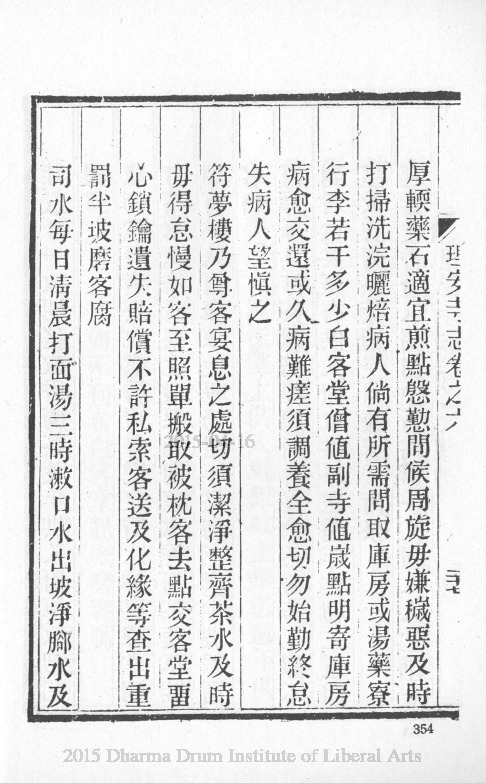 理安寺志卷之六
厚輭藥石適宜煎點慇懃問候周旋毋嫌穢惡及時
打掃洗浣曬焙病人倘有所需問取庫房或湯藥寮
行李若干多少白客堂僧值副寺值歲點明寄庫房
病愈交還或久病難瘥須調養全愈切勿始勤終怠
失病人望慎之
符夢樓乃尊客宴息之處切須潔淨整齊茶水及時
毋得怠慢如客至照單搬取被枕客去點交客堂畱
心鎖鑰遺失賠償不許私索客送及化緣等查出重
罰半坡磨客腐
司水每日淸晨打面湯三時漱口水出坡淨腳水及
354
2015-04-16
2015 Dharma Drum Institute of Liberal Arts